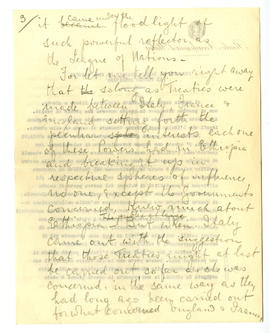 3/
it came under the
flood light of
such powerful reflector as
the League of Nations.
For let me tell you right away
that as long as Treaties were
made between Italy, France &
England setting forth the
interests each one
of these Powers had in Ethiopia
and breaking it up in
respective spheres of influence
no one, except the Governments
concerned, knew much about
Ethiopia. But when Italy
came out with the suggestion
that those Treaties might at last
be carried out so far as she was
concerned, in the same way as they
had long ago been carried out
for what concerned England & France